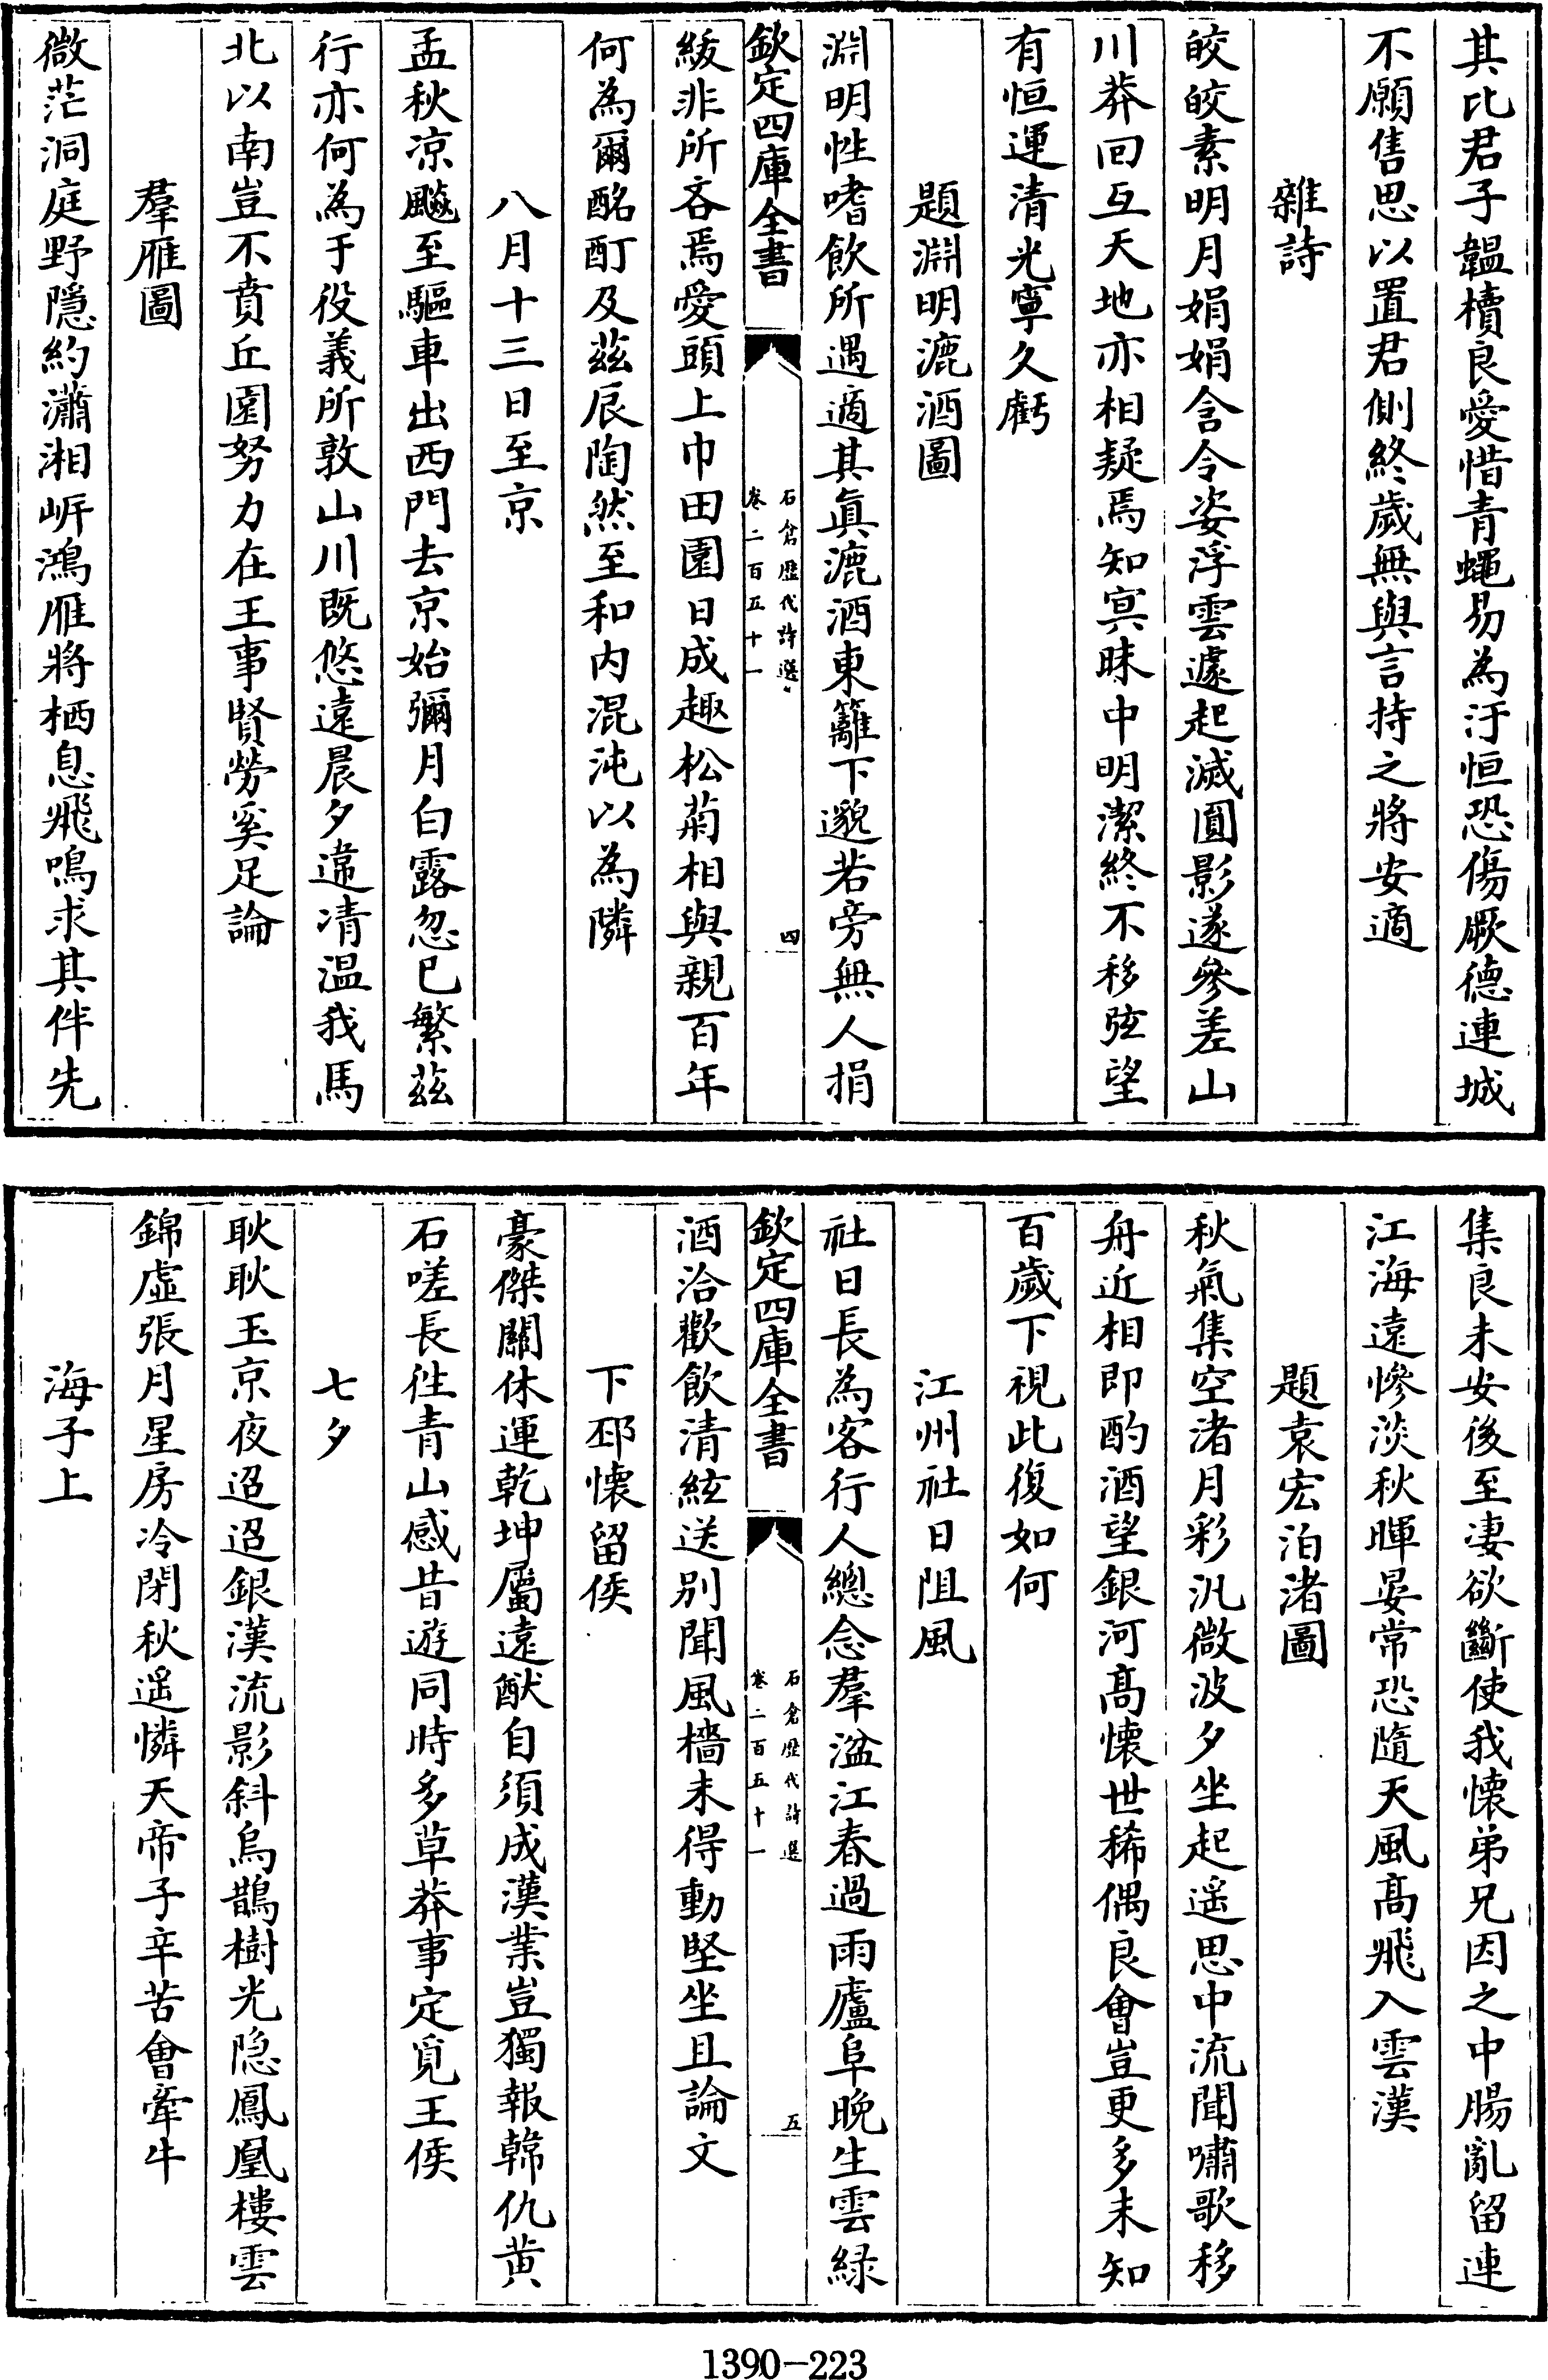 其比君子韞櫝良愛惜青蠅易為汙恒恐傷厥德連城
不願售思以置君側終歲無與言持之將安適
雜詩
皎皎素明月娟娟含令姿浮雲遽起滅圓影遂參差山
川莽回互天地亦相疑焉知㝠昧中明潔終不移弦望
有恒運清光寧久虧
題淵明漉酒圖
淵明性嗜飲所遇適其真漉酒東籬下邈若旁無人捐
欽定四庫全書
石倉歷代詩選
卷二百五十一
四
紱非所吝焉愛頭上巾田園日成趣松菊相與親百年
何為爾酩酊及茲辰陶然至和内混沌以為隣
八月十三日至京
孟秋凉飈至驅車出西門去京始彌月白露忽已繁茲
行亦何為于役義所敦山川既悠遠晨夕違凊温我馬
北以南豈不賁丘園努力在王事賢勞奚足論
羣雁圖
微茫洞庭野隱約瀟湘㟁鴻雁將栖息飛鳴求其伴先
集良未安後至凄欲斷使我懷弟兄因之中腸亂留連
江海遠慘淡秋暉晏常恐隨天風髙飛入雲漢
題袁宏泊渚圖
秋氣集空渚月彩汎微波夕坐起遥思中流聞嘯歌移
舟近相即酌酒望銀河髙懷世稀偶良會豈更多未知
百歲下視此復如何
江州社日阻風
社日長為客行人總念羣湓江春過雨廬阜晚生雲緑
欽定四庫全書
石倉歷代詩選
卷二百五十一
五
酒洽歡飲清絃送别聞風檣未得動堅坐且論文
下邳懷留侯
豪傑關休運乾坤屬遠猷自須成漢業豈獨報韓仇黄
石嗟長徃青山感昔遊同時多草莽事定覓王侯
七夕
耿耿玉京夜迢迢銀漢流影斜烏鵲樹光隐鳳凰樓雲
錦虛張月星房冷閉秋遥憐天帝子辛苦會牽牛
海子上
1390-223